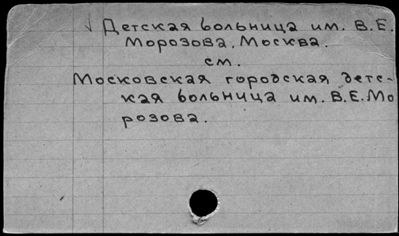 Детская больница им. В.Е.
Морозова, Москва.
см.
Московская городская детс-
кая больница им. В.Е.Мо
розова.